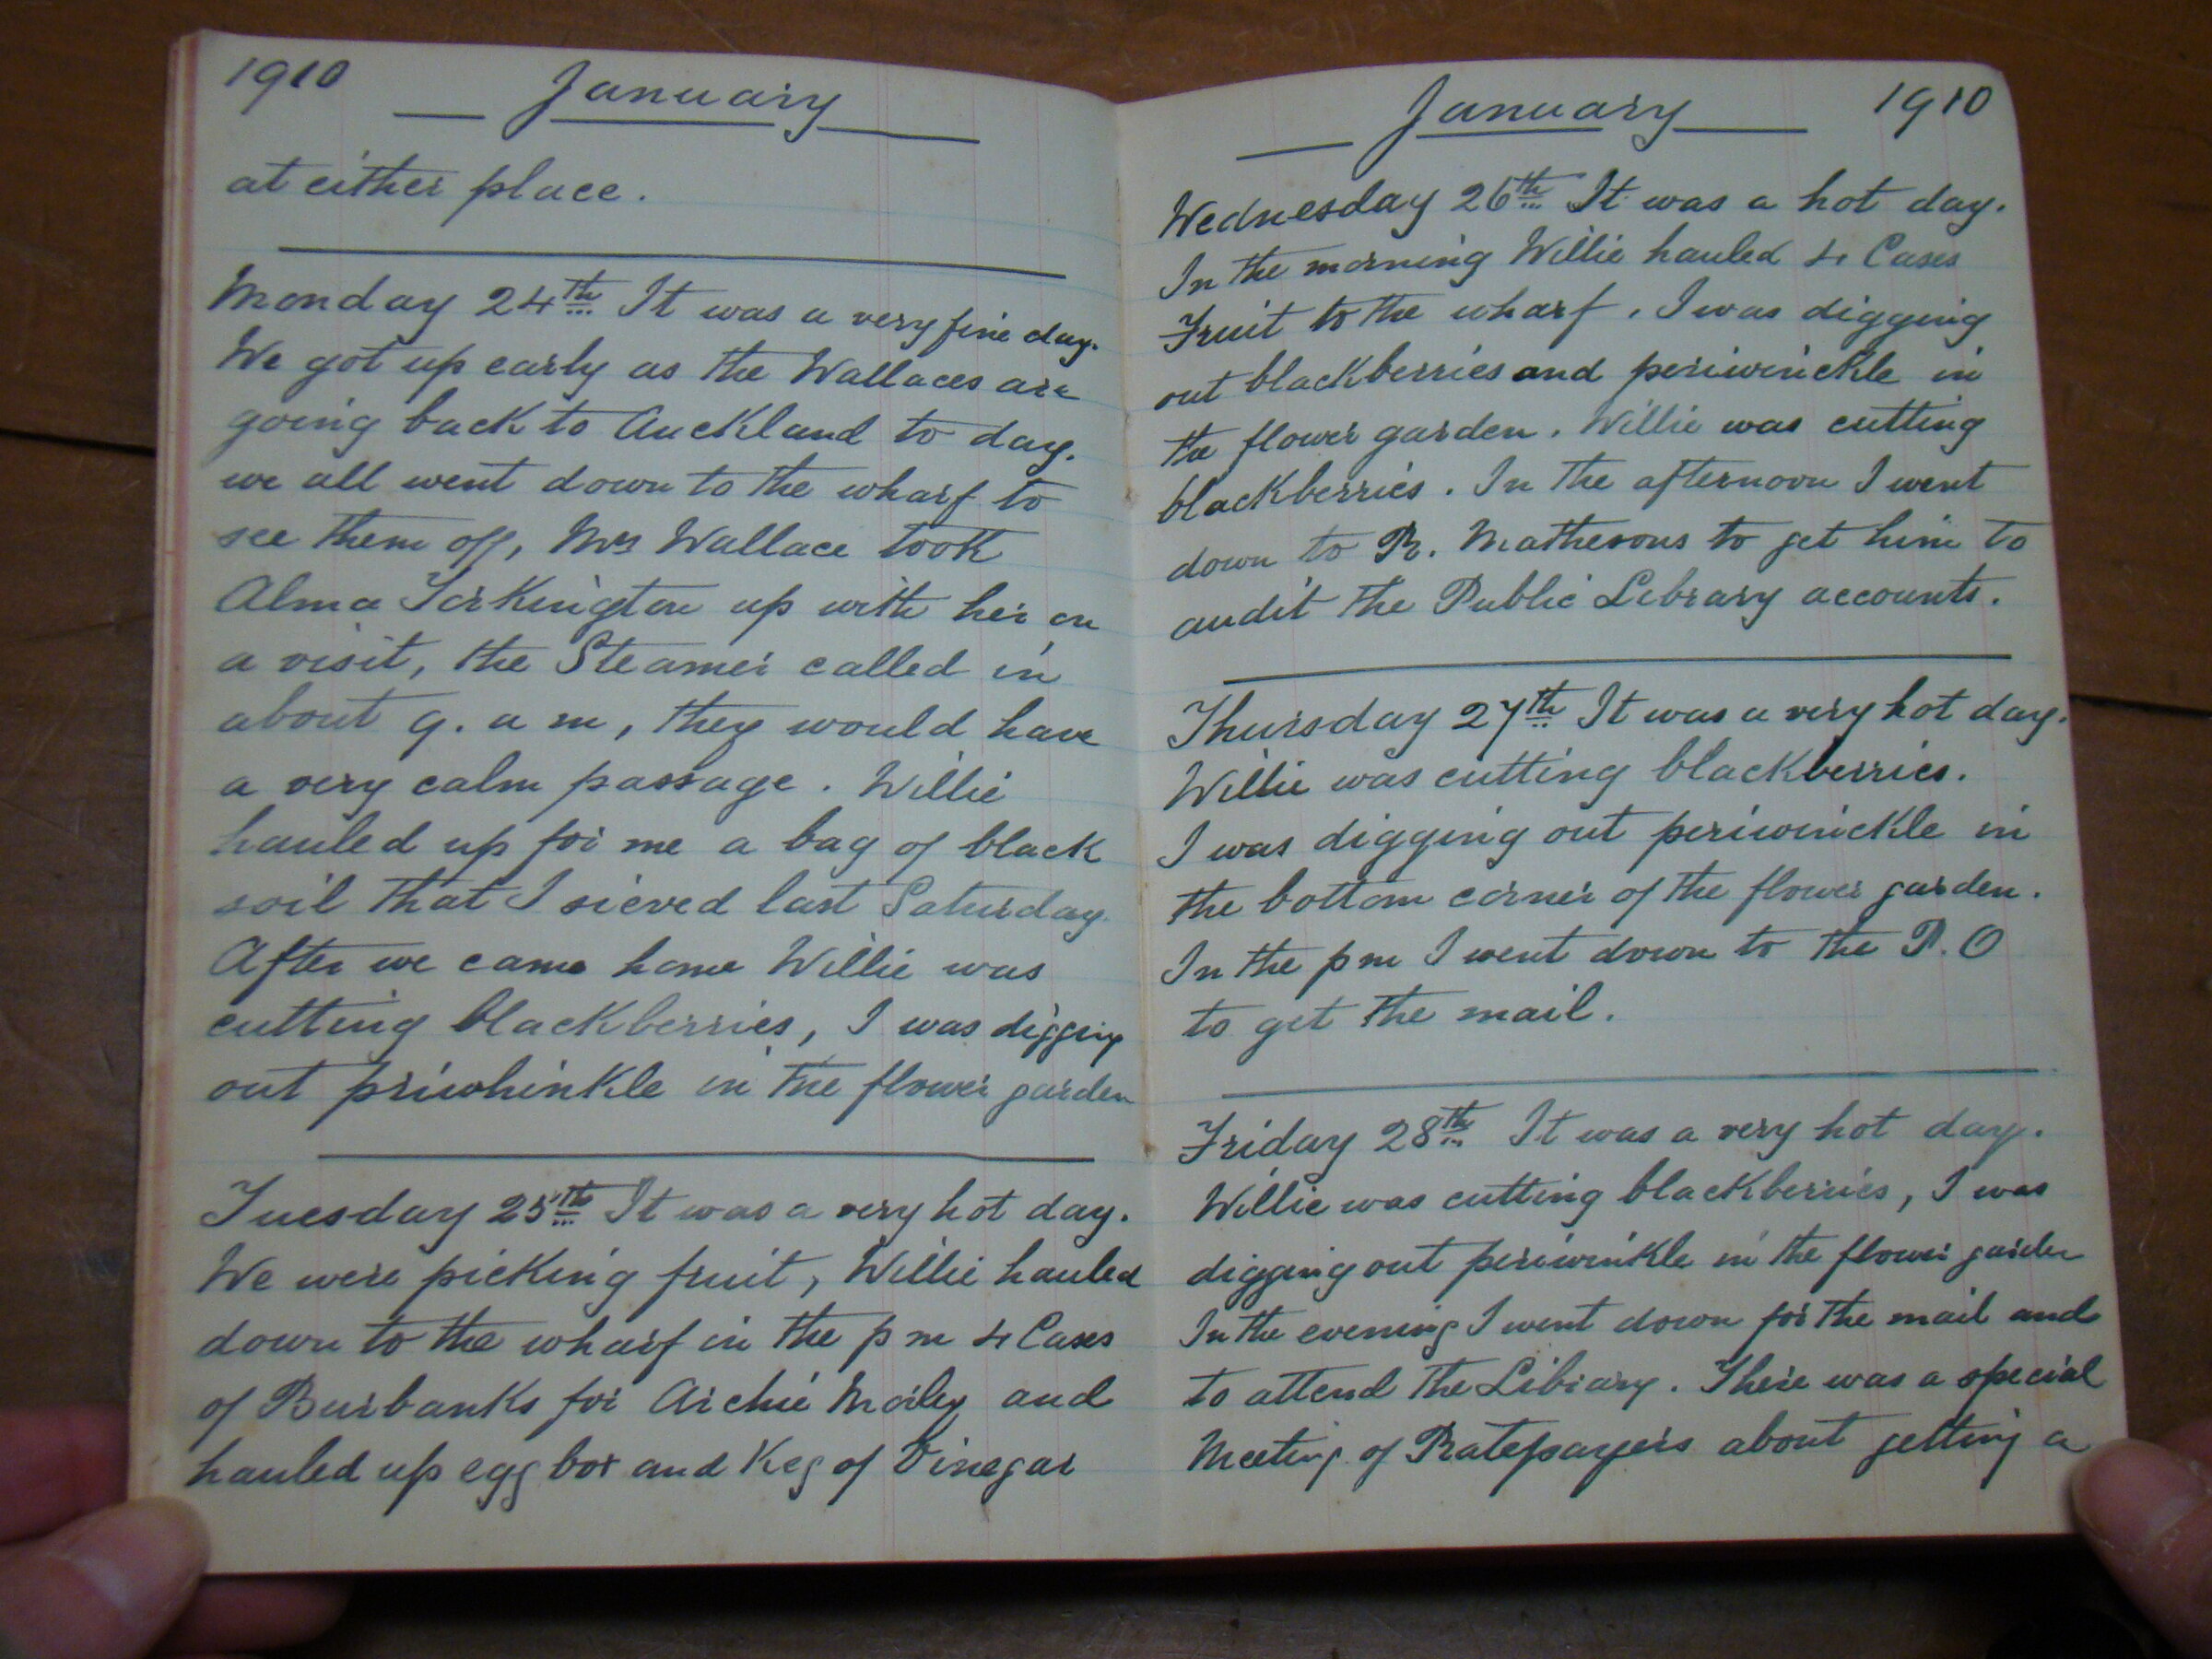 1910 January
at either place.
Monday 24th It was a very fine day.
We got up early as the Wallaces are
going back to Auckland to day.
we all went down to the wharf to
see them off, Mrs Wallace took
Alma Torkington up with her on
a visit, the Steamer called in
about 9. a m, they would have
a very calm passage. Willie
hauled up for me a bag of black
soil that I sieved last Saturday.
After we came home Willie was
cutting blackberries, I was digging
out priwhinkle in the flower garden
Tuesday 25th It was a very hot day.
We were picking fruit, Willie hauled
down to the wharf in the p m 4 Cases
of Burbanks for Archie and
hauled up egg box and Keg of Vinegar
January 1910
Wednesday 26th It was a hot day.
In the morning Willie hauled 4 Cases
Fruit to the wharf. I was digging
out blackberries and periwinckle in
the flower garden. Willie was cutting
blackberries. In the afternoon I went
down to R. Mathesons to get him to
audit the Public Library accounts.
Thursday 27th It was a very hot day.
Willie was cutting blackberries.
I was digging out periwinckle in
the bottom corner of the flower garden.
In the p m I went down to the P.O
to get the mail.
Friday 28th It was a very hot day.
Willie was cutting blackberries, I was
digging out periwinkle in the flower garden
In the evening I went down for the mail and
to attend the Library. There was a special
Meeting of Ratepayers about getting a